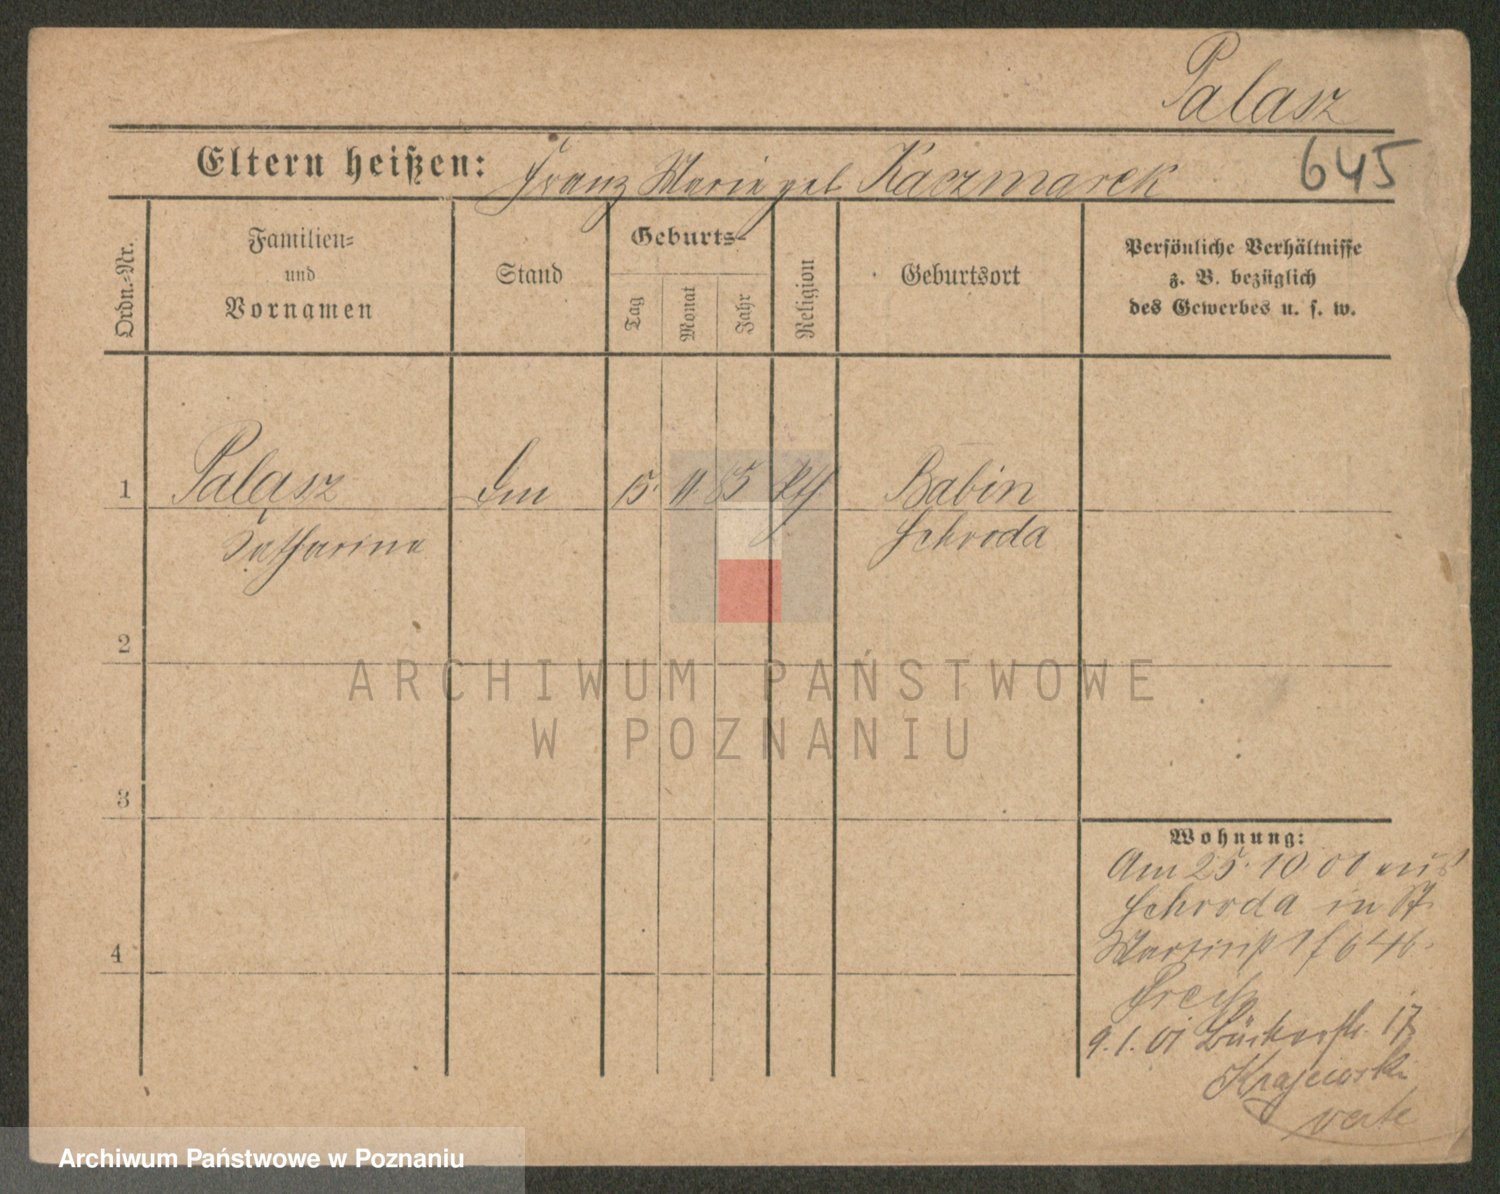 Palasz
645
Eltern heißen: Franz Marie geb Kaczmarek
Ordn.-Nr.
Familien-
und
Vornamen
Stand
Geburts-
Tag
Monat
Jahr
Religion
Geburtsort
Persönliche Verhältnisse
z. B. bezüglich
des Gewerbes u. s. w.
1
Palasz
Catharina
15. 11. 85
Babin
Schroda
2
3
4
Wohnung:
Am 25. 10. 00 aus
Schroda in St.
9. 1. 01 Bäckerstr. 17
Krajewski
verte
ARCHIWUM PAŃSTWOWE
W POZNANIU
Archiwum Państwowe w Poznaniu